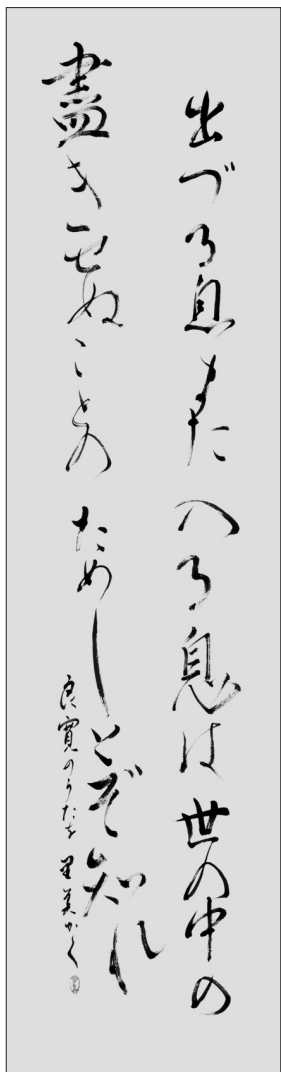 出づる息また入る息は世の中の
盡きせぬことのためしとぞ知れ
良寛のうたを 里美かく